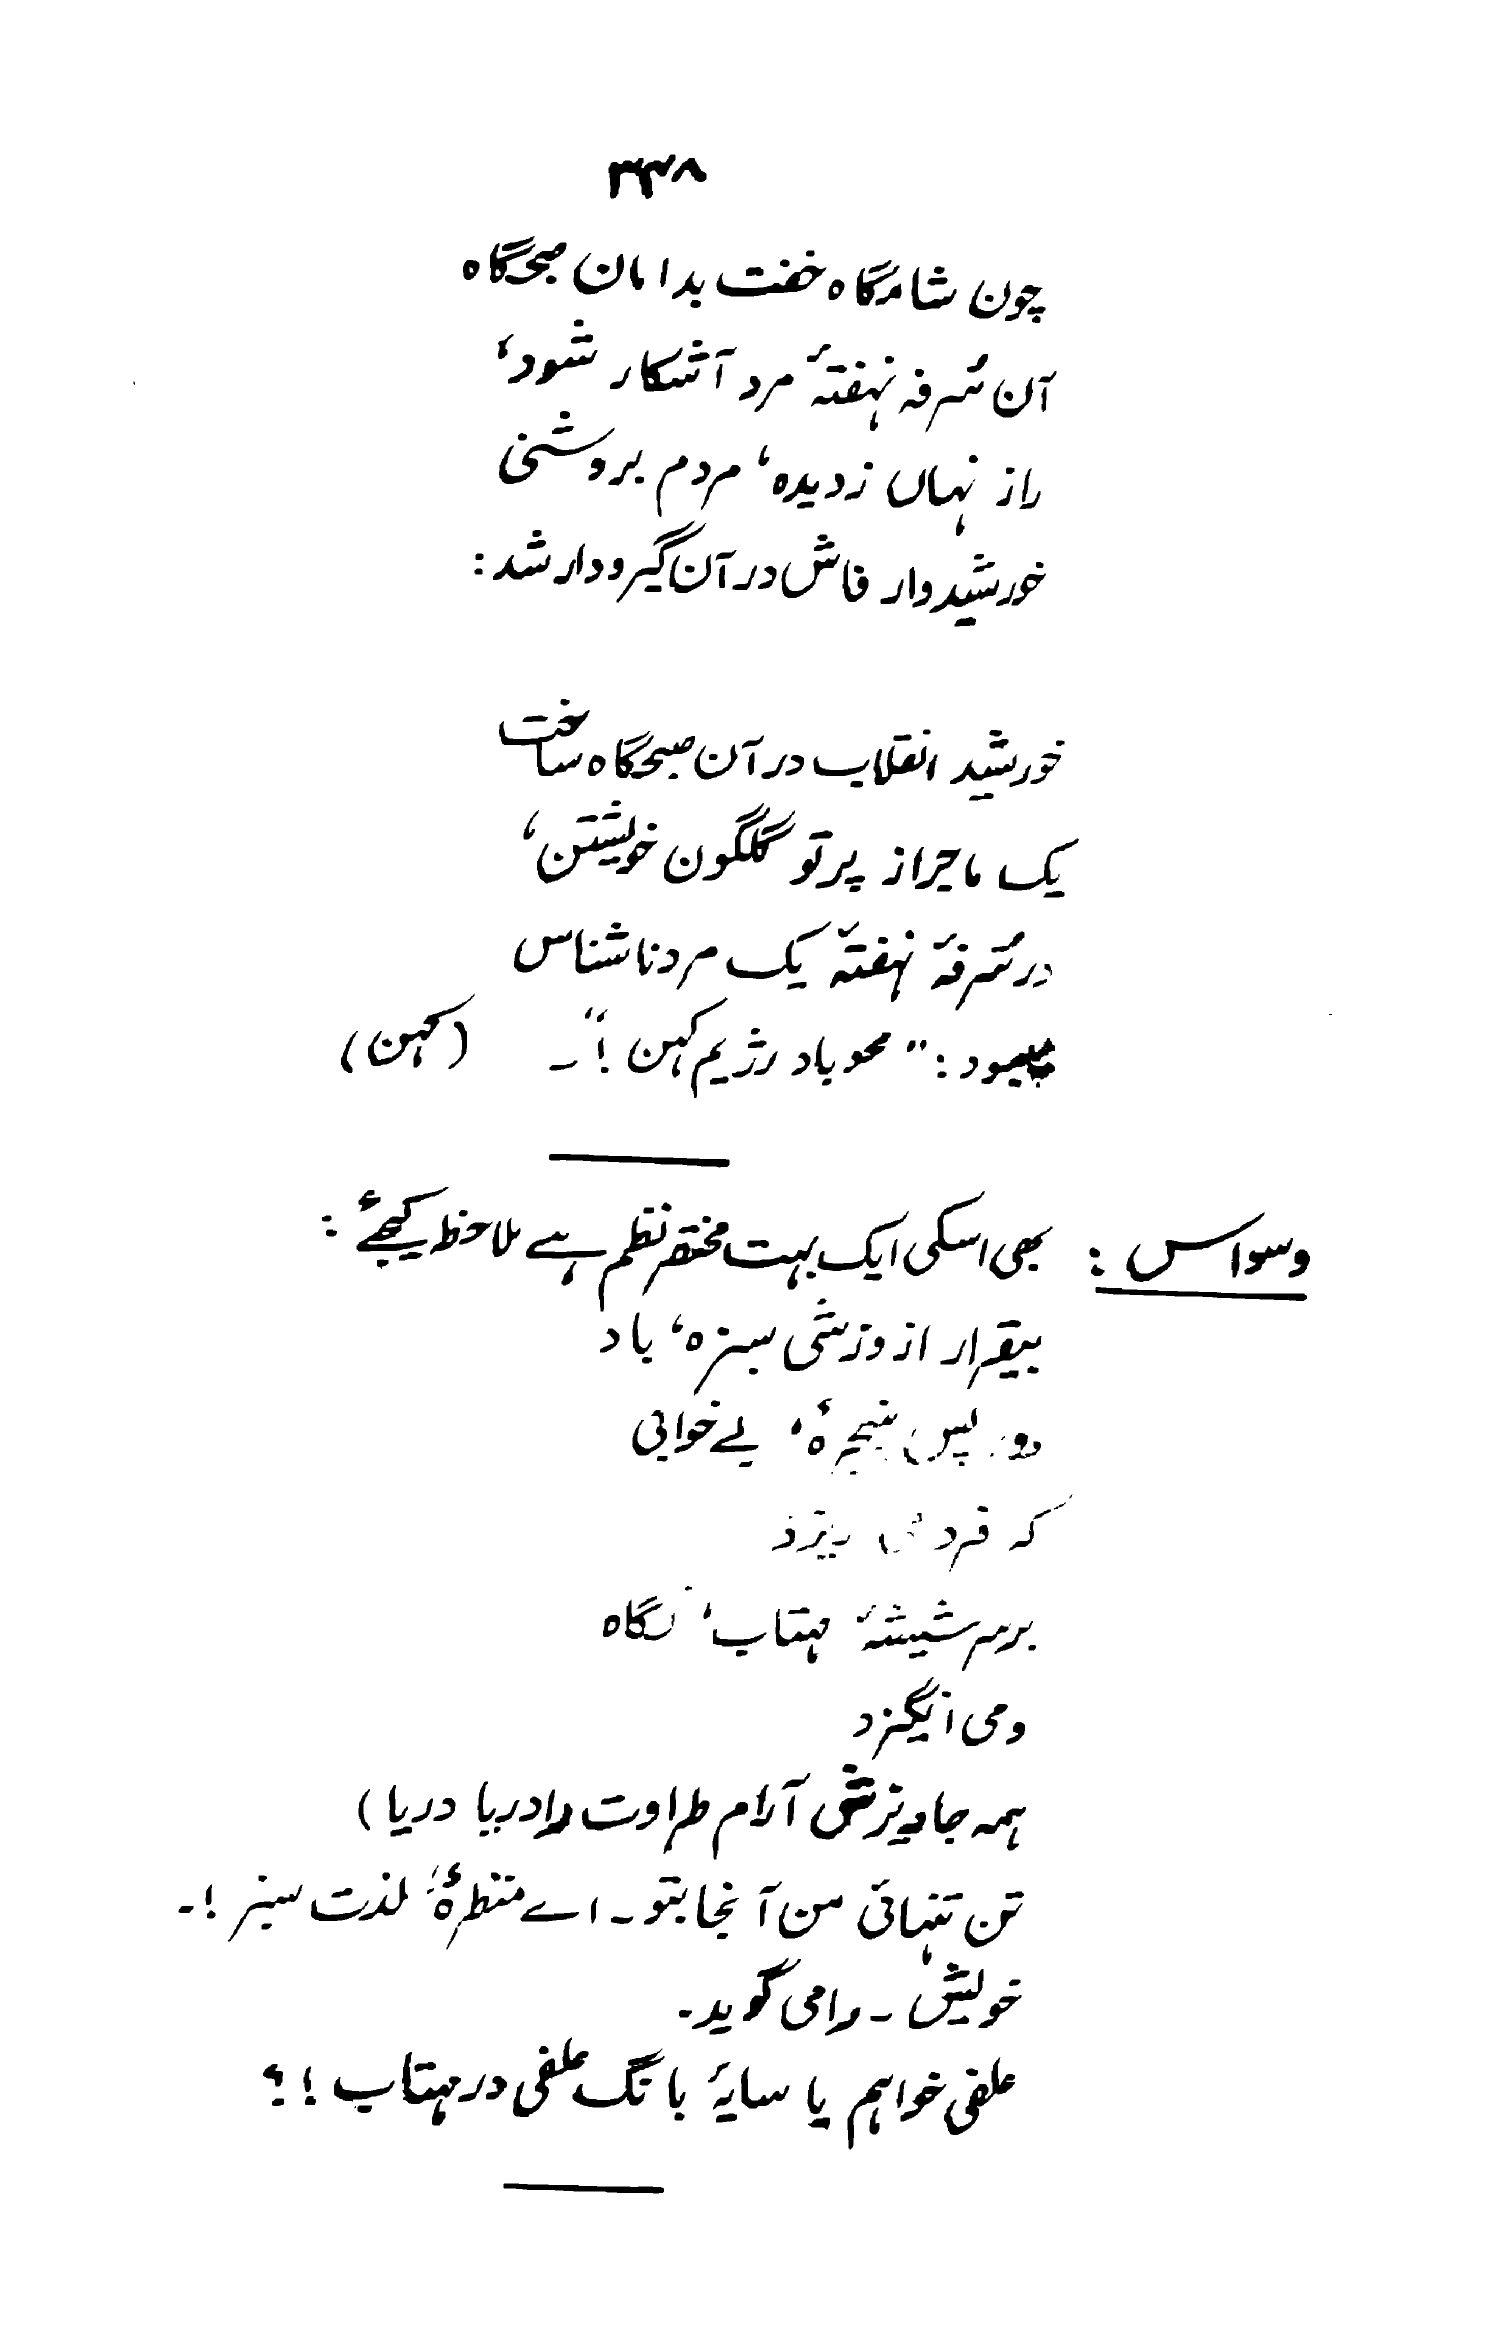 ۳۳۸
چون شامگاه خفت بدامان صبحگاه
آن سُرفہ نہفتۂ مرد آشکار شود،
راز نہاں زدیدہ، مردم بروشنی
خورشیدوار فاش در آن گیرودار شد:
خورشید انقلاب در آن صبحگاه ساخت
یک ماجرا از پرتو گلگون خویشتن،
در سُرفۂ نہفتۂ یک مردناشناس
"محوباد رژیم کہن!"۔ (کہن)
وسواس: بھی اسکی ایک بہت مختصر نظم ہے ملاحظہ کیجئے:
بیقرار از وزشی سبزہ، باد
دور پس پنجرۂ، بے خوابی
کہ فرد می ریزد
برسر شیشۂ مہتاب، نگاہ
ومی انگیزد
ہمہ جا ویزش آرام طراوت را دریا دریا)
تن تنہائی من آنجا بتو۔ اے منظرۂ لذت سبز!۔
خویش۔ رامی گوید۔
علفی خواہم یا سایۂ بانگ علفی در مہتاب!؟